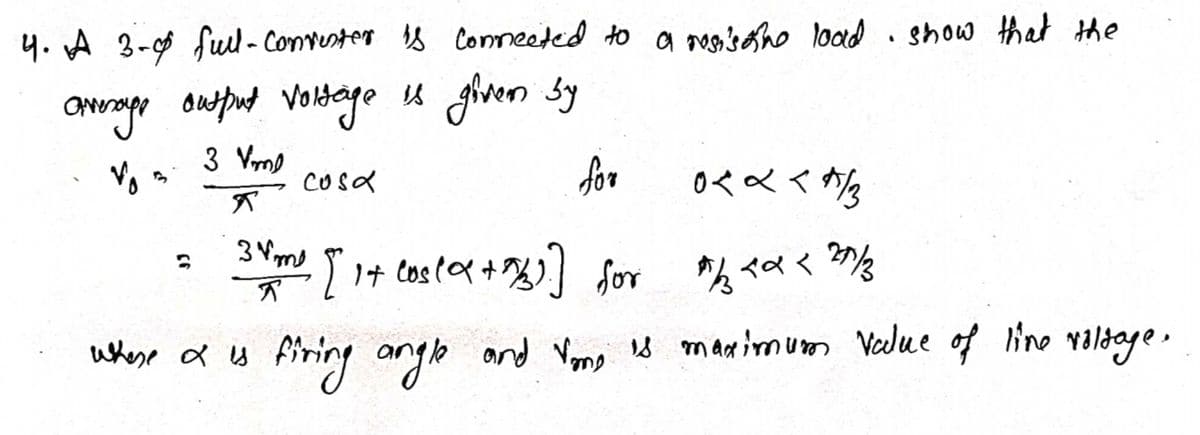 4. A 3-φ full-converter is connected to a resistive load. show that the
average output voltage is given by
V₀ = 3 Vml / π cosα for 0 < α < π/3
= 3 Vml / π [ 1 + cos(α + π/3) ] for π/3 < α < 2π/3
where α is firing angle and Vml is maximum value of line voltage.